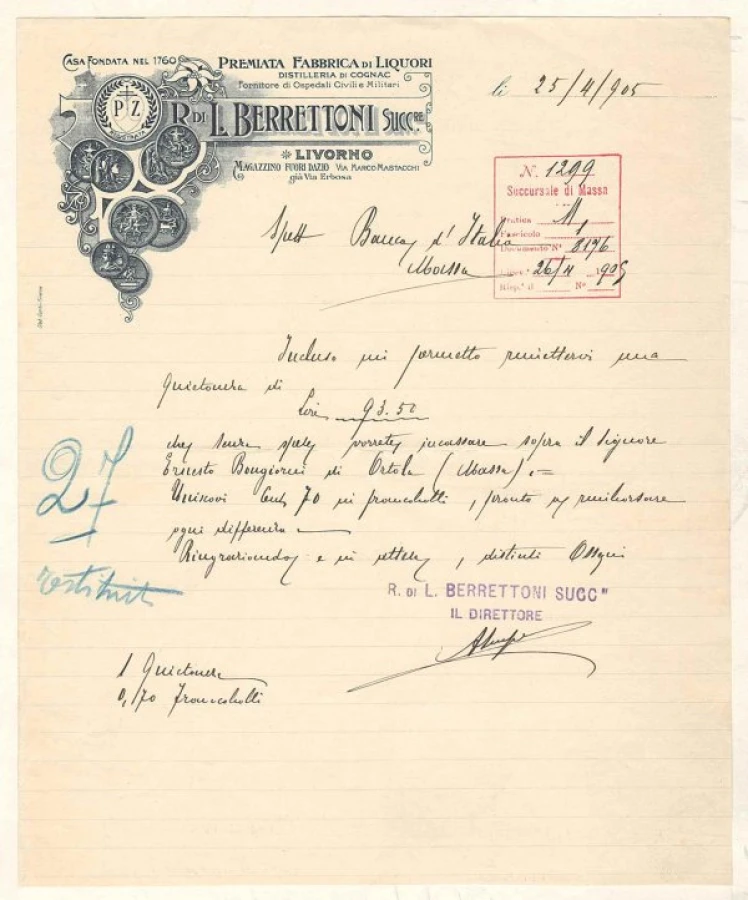 CASA FONDATA NEL 1760
PREMIATA FABBRICA DI LIQUORI
DISTILLERIA DI COGNAC
Fornitore di Ospedali Civili e Militari
P Z
R. DI L. BERRETTONI SUCC.RE
LIVORNO
MAGAZZINO FUORI DAZIO VIA MARCO MASTACCHI
già Via Erbosa
li 25/4/905
N. 1299
Succursale di Massa
Pratica M
Fascicolo 1
Documento N° 3176
26/4 1905
Risp.ª il N°
Spett Banca d'Italia
Massa
Incluso mi permetto rimettervi una
Quietanza di
Lire 93.50
che senza spese vorrete incassare sopra il Signore
Ernesto Bongiorni di Ortola (Massa) =
Uniscovi Cent 70 in francobolli, pronto a rimborsare
ogni differenza
Ringraziando e in attesa, distinti Ossequi
27
restituit
R. DI L. BERRETTONI SUCC"
IL DIRETTORE
1 Quietanza
0,70 Francobolli